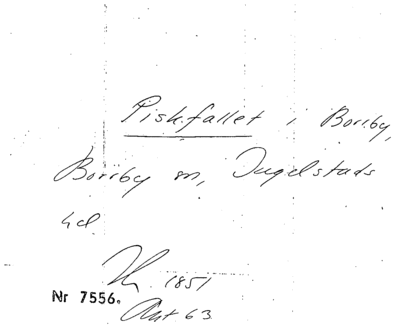 Piskfallet i Borrby,
Borrby sn, Ingelstads
hd.
1851
Nr 7556.
Akt 63